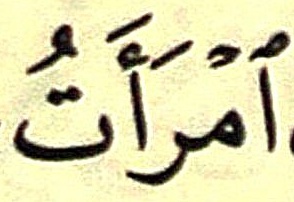 ٱمْرَأَتُ